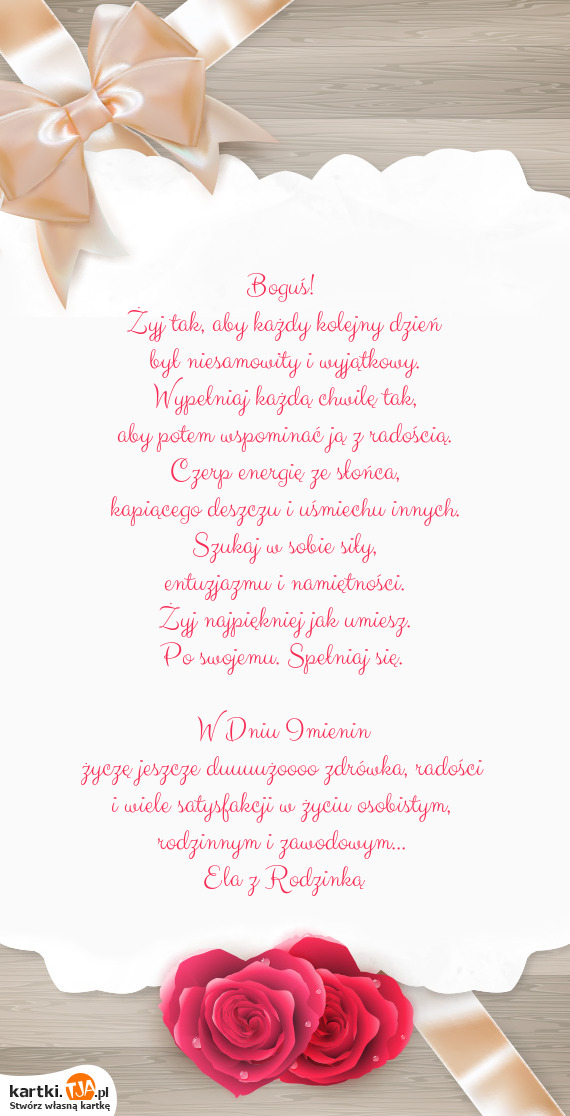 Boguś!
Żyj tak, aby każdy kolejny dzień
był niesamowity i wyjątkowy.
Wypełniaj każdą chwilę tak,
aby potem wspominać ją z radością.
Czerp energię ze słońca,
kapiącego deszczu i uśmiechu innych.
Szukaj w sobie siły,
entuzjazmu i namiętności.
Żyj najpiękniej jak umiesz.
Po swojemu. Spełniaj się.
W Dniu Imienin
życzę jeszcze duuuużoooo zdrówka, radości
i wiele satysfakcji w życiu osobistym,
rodzinnym i zawodowym...
Ela z Rodzinką
kartki.TJA.pl
Stwórz własną kartkę